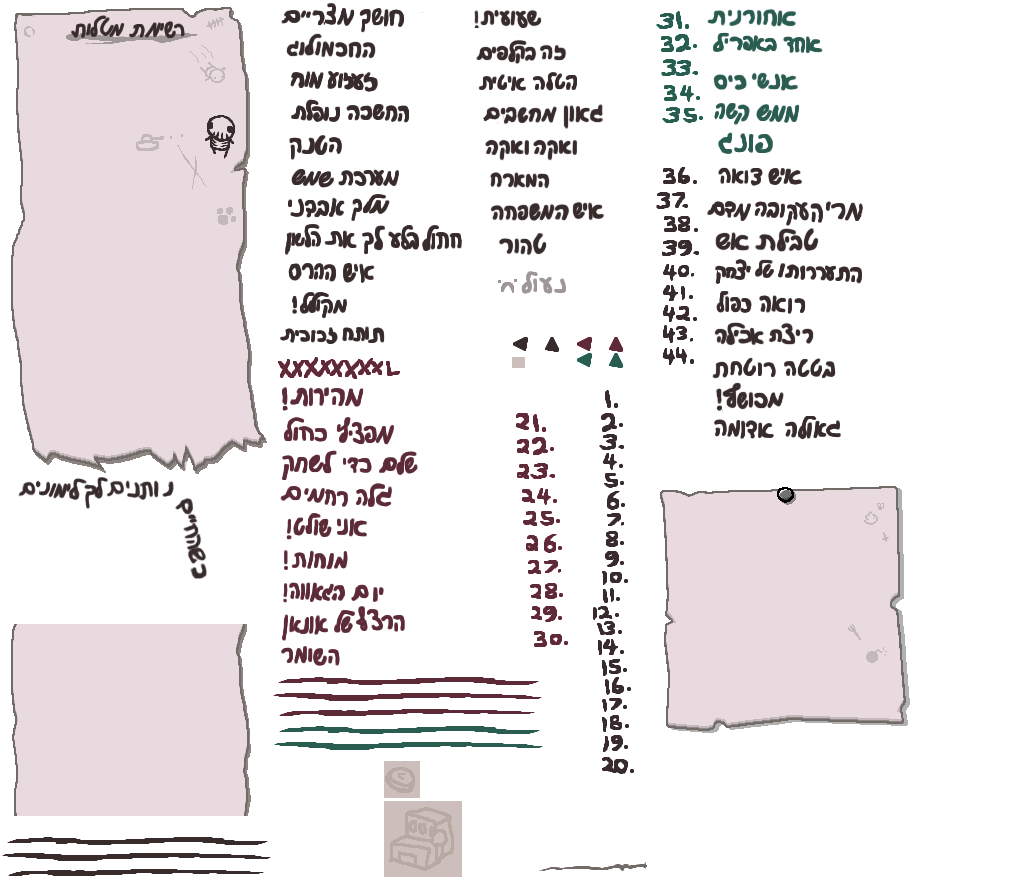 רשימת מטלות
נותנים לך לימונים
כשהחיים
חושך מצריים
החכמולוג
זעזוע מוח
החשכה נופלת
הטנק
מערכת שמש
מלך אבדני
חתול בלע לך את הלשון
איש ההרס
מקולל!
תותח זכוכית
XXXXXXXXL
מהירות!
מפציץ כחול
שלם כדי לשחק
גלה רחמים
אני שולט!
מוחות!
יום הגאווה!
הרצף של אונאן
השומר
שעועית!
זה בקלפים
הטלה איטית
גאון מחשבים
וואקה וואקה
המארח
איש המשפחה
טהור
נעול :(
21.
22.
23.
24.
25.
26.
27.
28.
29.
30.
1.
2.
3.
4.
5.
6.
7.
8.
9.
10.
11.
12.
13.
14.
15.
16.
17.
18.
19.
20.
31.
32.
33.
34.
35.
36.
37.
38.
39.
40.
41.
42.
43.
44.
אחורנית
אחד באפריל
אנשי כיס
ממש קשה
פונג
איש צוואה
מרי העקובה מדם
טבילת אש
התעררותו של יצחק
רואה כפול
ריצת אכילה
בטטה רוטחת
מכושף!
גאולה אדומה